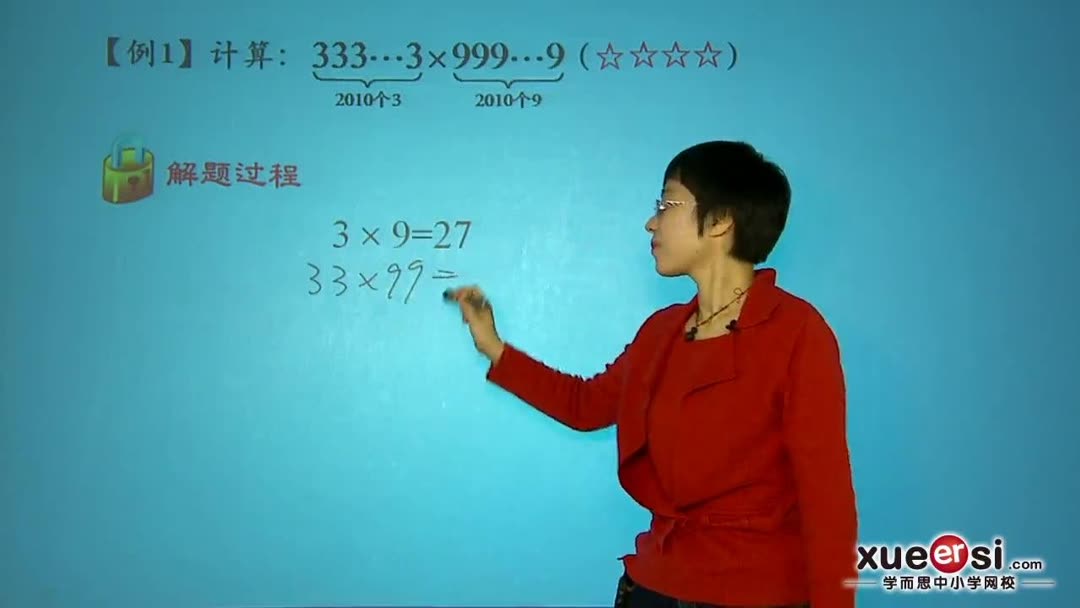 【例1】计算：333…3×999…9（☆☆☆☆）
2010个3 2010个9
解题过程
3 × 9=27
33×99=
xueersi.com
学而思中小学网校